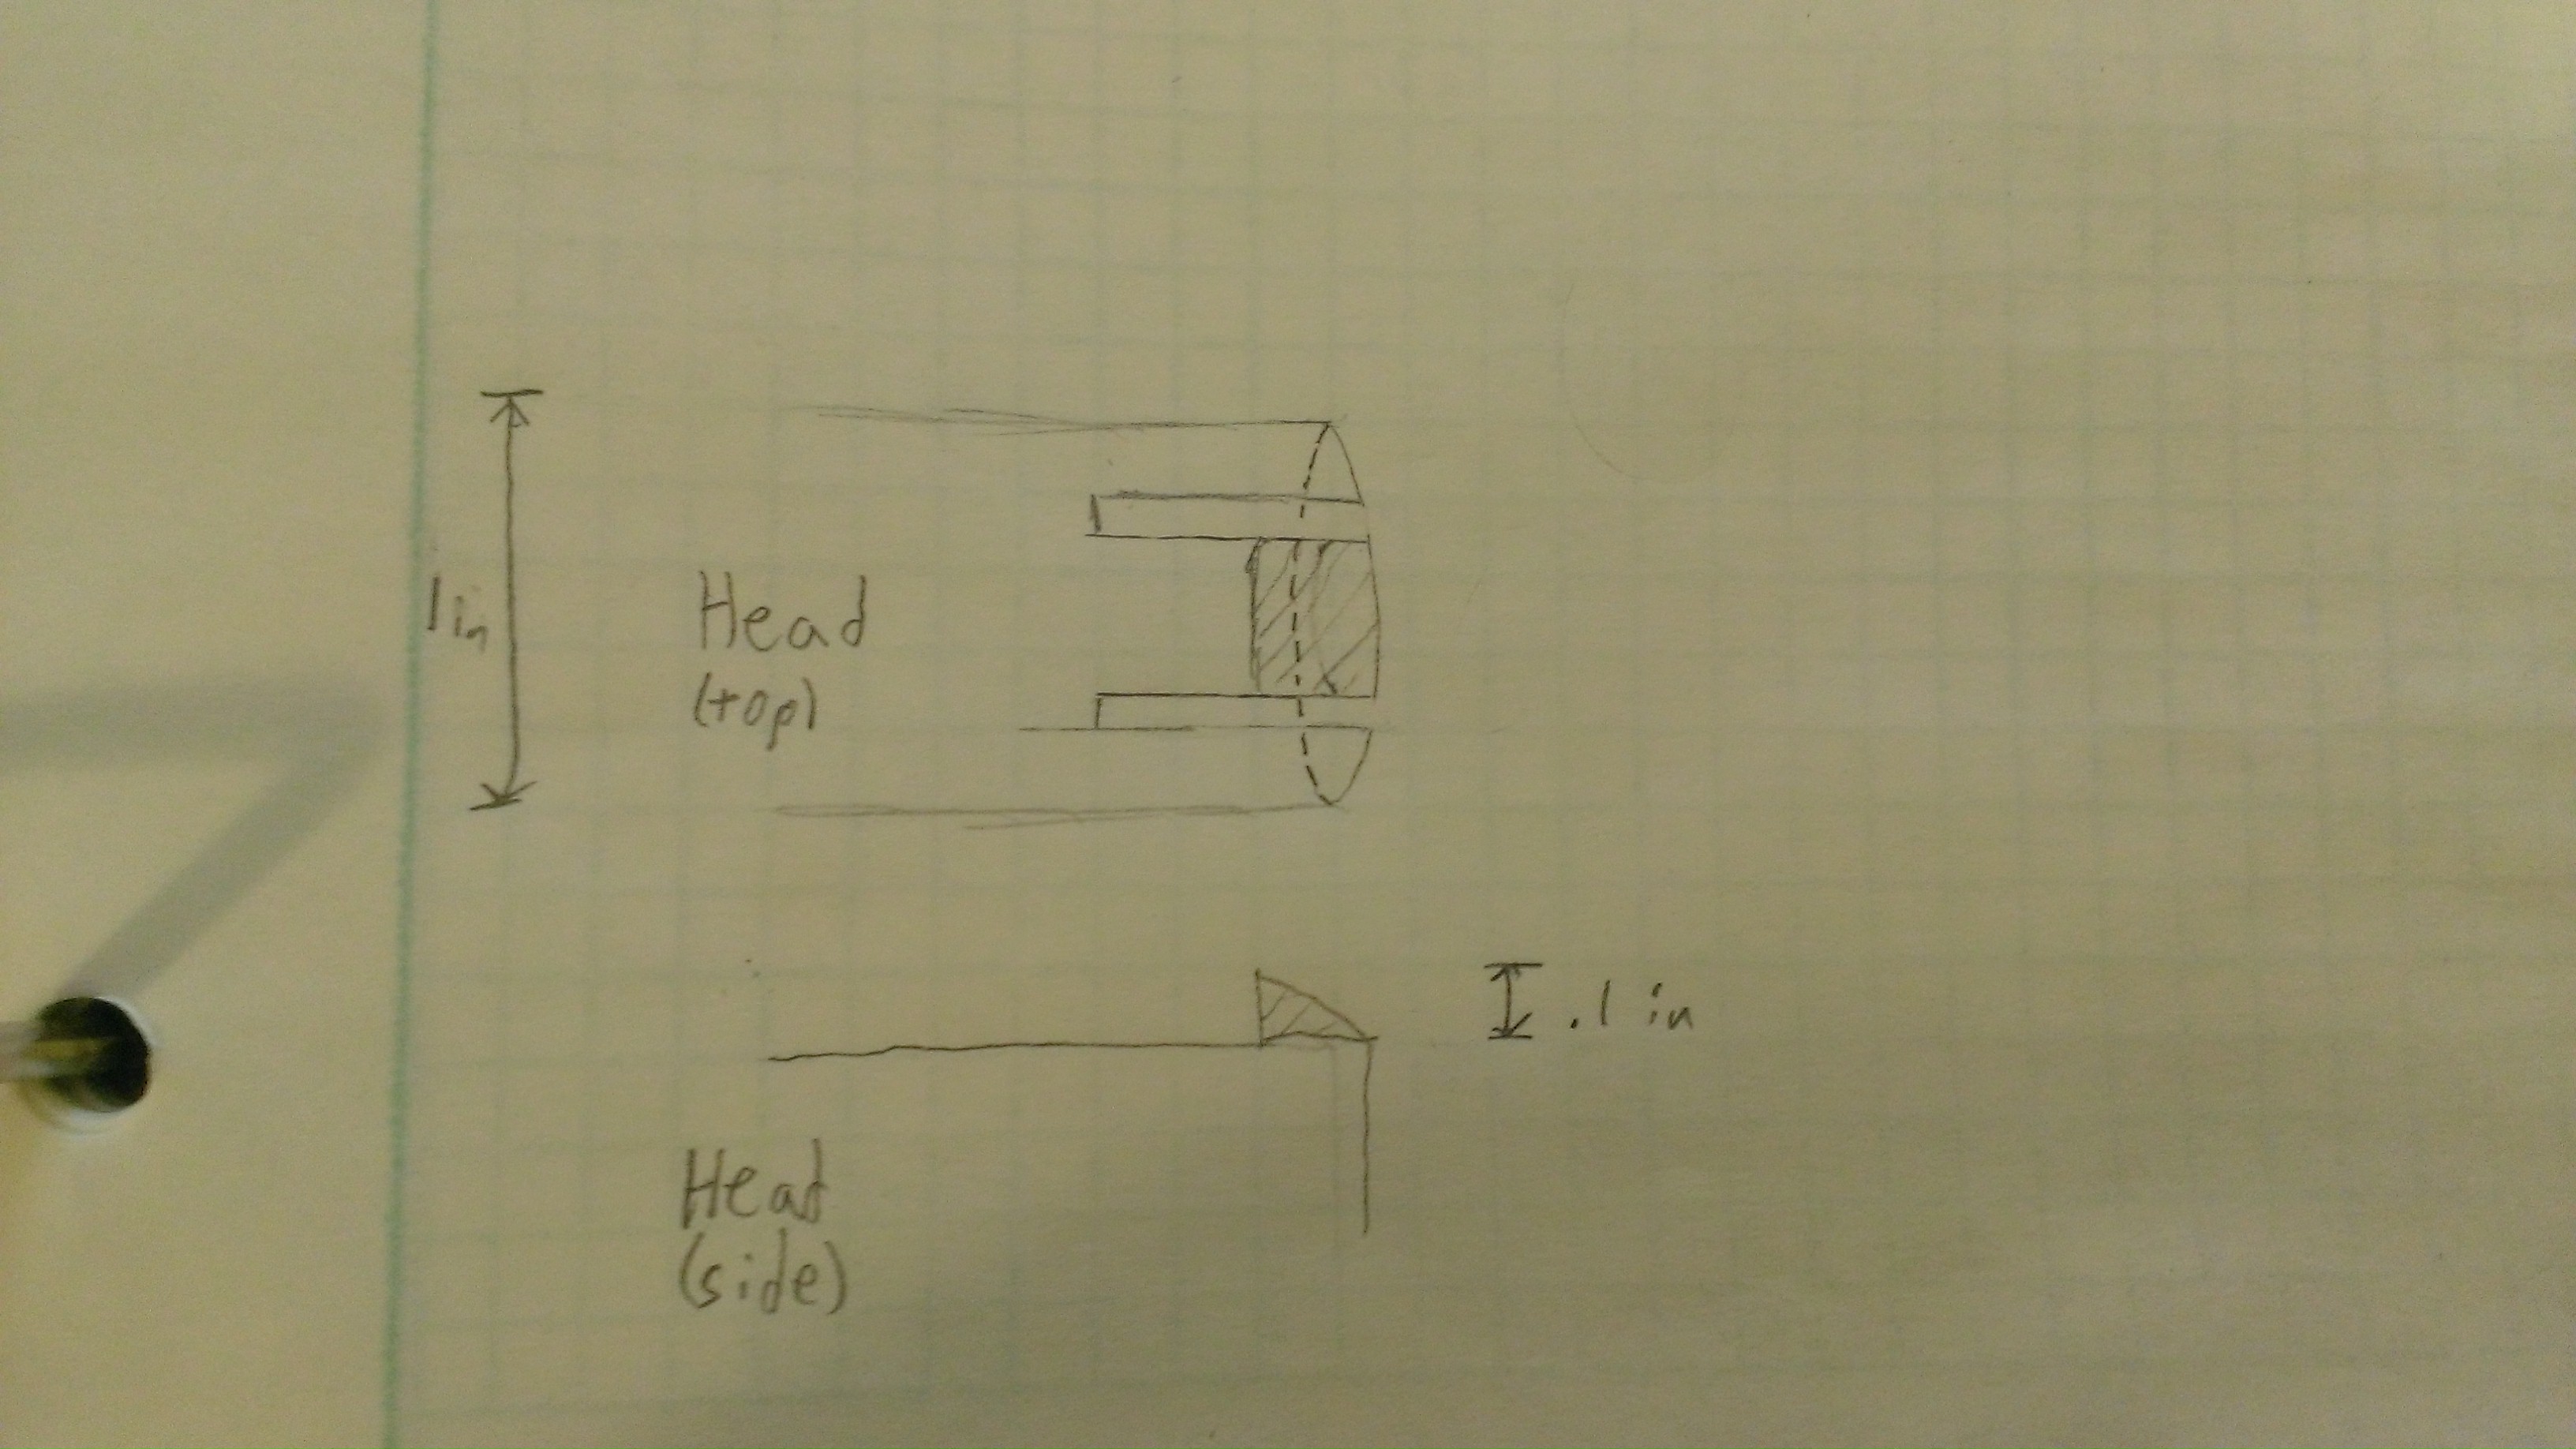 1 in
Head
(top)
.1 in
Head
(side)